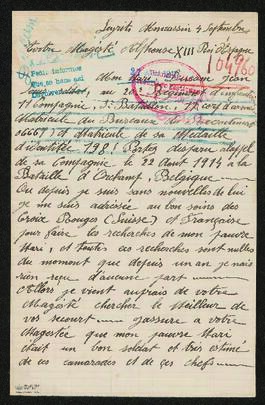 Seyrits Monsassin 4 Septembre
Votre Magesté Alphonse XIII Roi d'Espagne
104960
Pedir informes
Mon Mari, Ducane Jean
au 20 Regiment d'infanterie
11 Compagnie, 3 Bataillon, 17 corp d'armée
Matricule du Bureaux de Recrutement
et Matricule de sa Medaille
d'identité 1981 Porter disparu à l'appel
de sa Compagnie le 22 Aout 1914 à la
Bataille d'Ochamp, Belgique
Ou depuis je suis sans nouvelles de lui
je me suis adressée au bon soins des
Croix Rouges (Suisse) et Française
pour faire les recherches de mon pauvre
Mari, et toutes ces recherches sont nulles
du moment que depuis un an je n'ais
rien reçu d'aucune part
Allors je vient auprais de votre
Magésté chercher le Meilleur de
vos secourt j'assure a votre
Magestée que mon pauvre Mari
était un bon soldat et très estimé
de ces camarades et de ces chefs